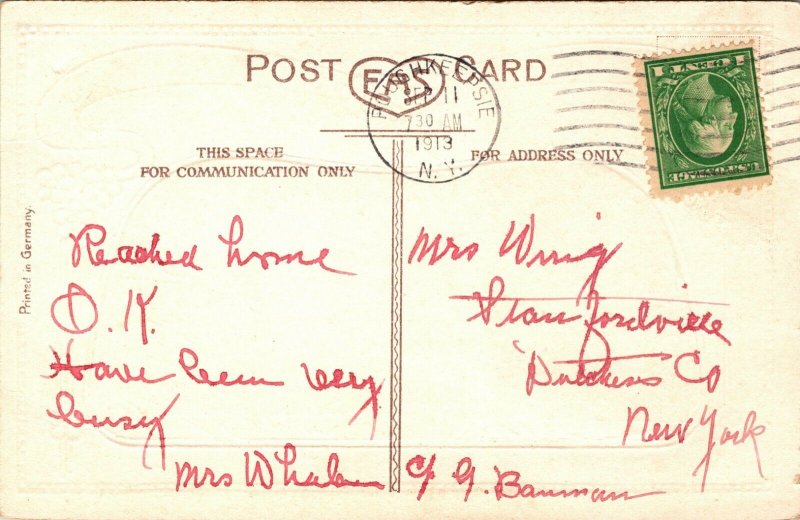 POST CARD
EAS
POUGHKEEPSIE
SEP 11
730 AM
1913
N. Y.
THIS SPACE
FOR COMMUNICATION ONLY
FOR ADDRESS ONLY
Printed in Germany.
Reached home
O. K.
Have been very
busy
Mrs Whalen
Mrs Wing
Stanfordville
Dutchess Co
New York
c/o G. Bauman
U.S. POSTAGE
1 CENT 1